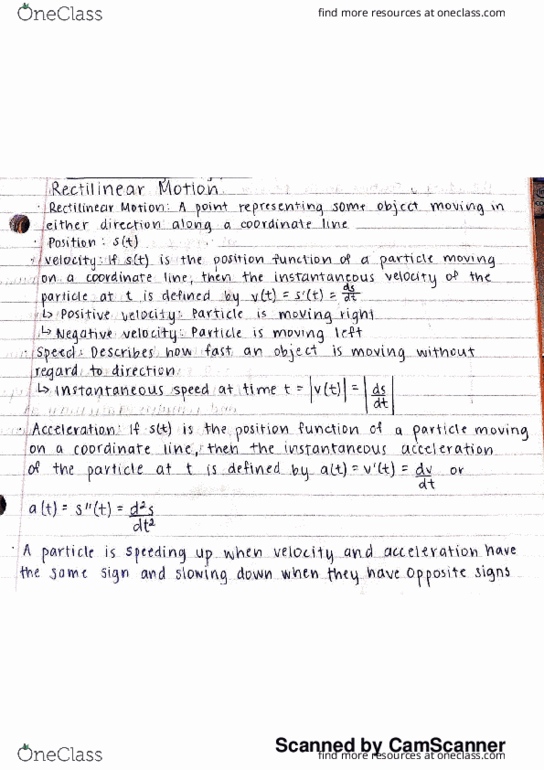 OneClass
find more resources at oneclass.com
Rectilinear Motion
· Rectilinear Motion: A point representing some object moving in
either direction along a coordinate line
· Position: s(t)
· Velocity: If s(t) is the position function of a particle moving
on a coordinate line, then the instantaneous velocity of the
particle at t is defined by v(t) = s'(t) = ds/dt
↳ Positive velocity: Particle is moving right
↳ Negative velocity: Particle is moving left
Speed: Describes how fast an object is moving without
regard to direction
↳ Instantaneous speed at time t = |v(t)| = |ds/dt|
Acceleration: If s(t) is the position function of a particle moving
on a coordinate line, then the instantaneous acceleration
of the particle at t is defined by a(t) = v'(t) = dv/dt or
a(t) = s''(t) = d²s/dt²
· A particle is speeding up when velocity and acceleration have
the same sign and slowing down when they have opposite signs
Scanned by CamScanner
OneClass
find more resources at oneclass.com